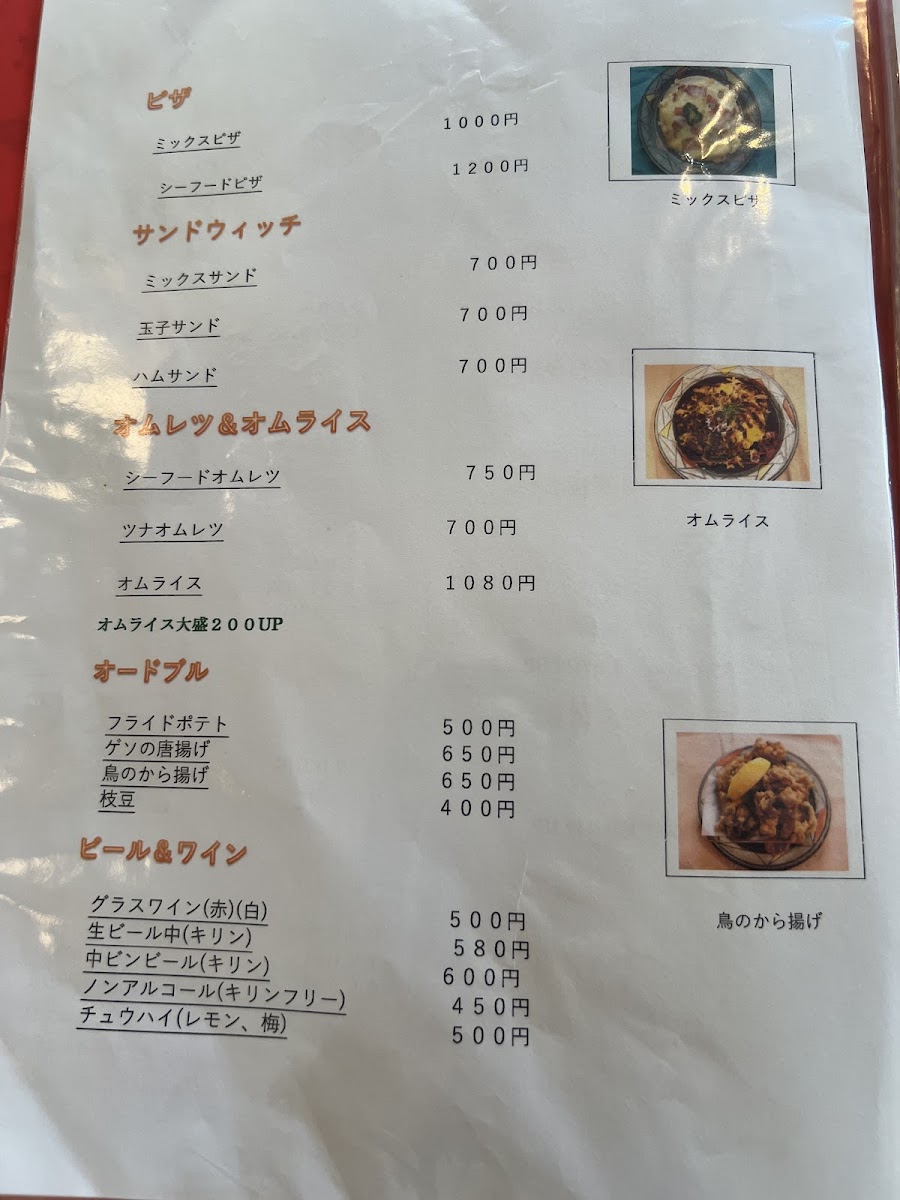 ピザ
ミックスピザ 1000円
シーフードピザ 1200円
ミックスピザ
サンドウィッチ
ミックスサンド 700円
玉子サンド 700円
ハムサンド 700円
オムレツ＆オムライス
シーフードオムレツ 750円
ツナオムレツ 700円
オムライス
オムライス 1080円
オムライス大盛200UP
オードブル
フライドポテト 500円
ゲソの唐揚げ 650円
鳥のから揚げ 650円
枝豆 400円
ビール＆ワイン
グラスワイン(赤)(白) 500円
生ビール中(キリン) 580円
中ビンビール(キリン) 600円
ノンアルコール(キリンフリー) 450円
チュウハイ(レモン、梅) 500円
鳥のから揚げ